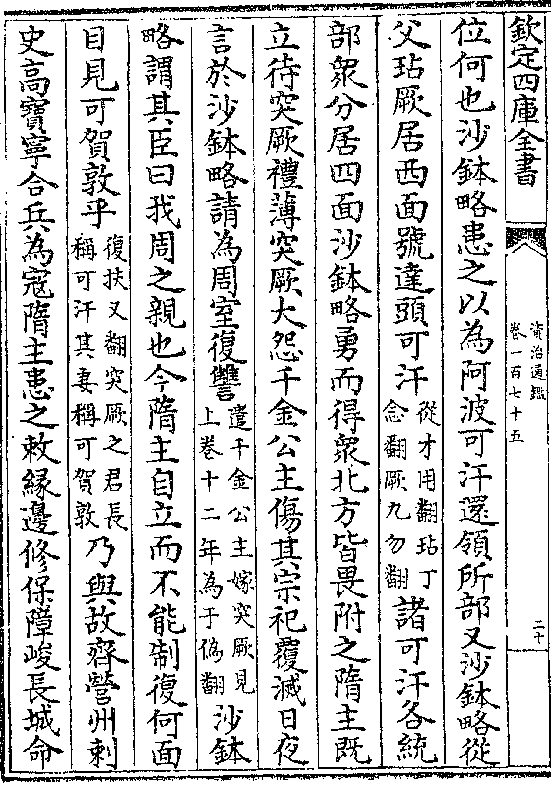 欽定四庫全書
資治通鑑
卷一百七十五
二十
位何也沙鉢略患之以為阿波可汗還領所部又沙鉢略從
父玷厥居西面號達頭可汗從才用翻玷丁念翻厥九勿翻諸可汗各統
部衆分居四面沙鉢略勇而得衆北方皆畏附之隋主既
立待突厥禮薄突厥大怨千金公主傷其宗祀覆滅日夜
言於沙鉢略請為周室復讐遣千金公主嫁突厥見上卷十二年為于偽翻沙鉢
略謂其臣曰我周之親也今隋主自立而不能制復何面
目見可賀敦乎復扶又翻突厥之君長稱可汗其妻稱可賀敦乃與故齊營州刺
史高寶寧合兵為寇隋主患之敕緣邊修保障峻長城命